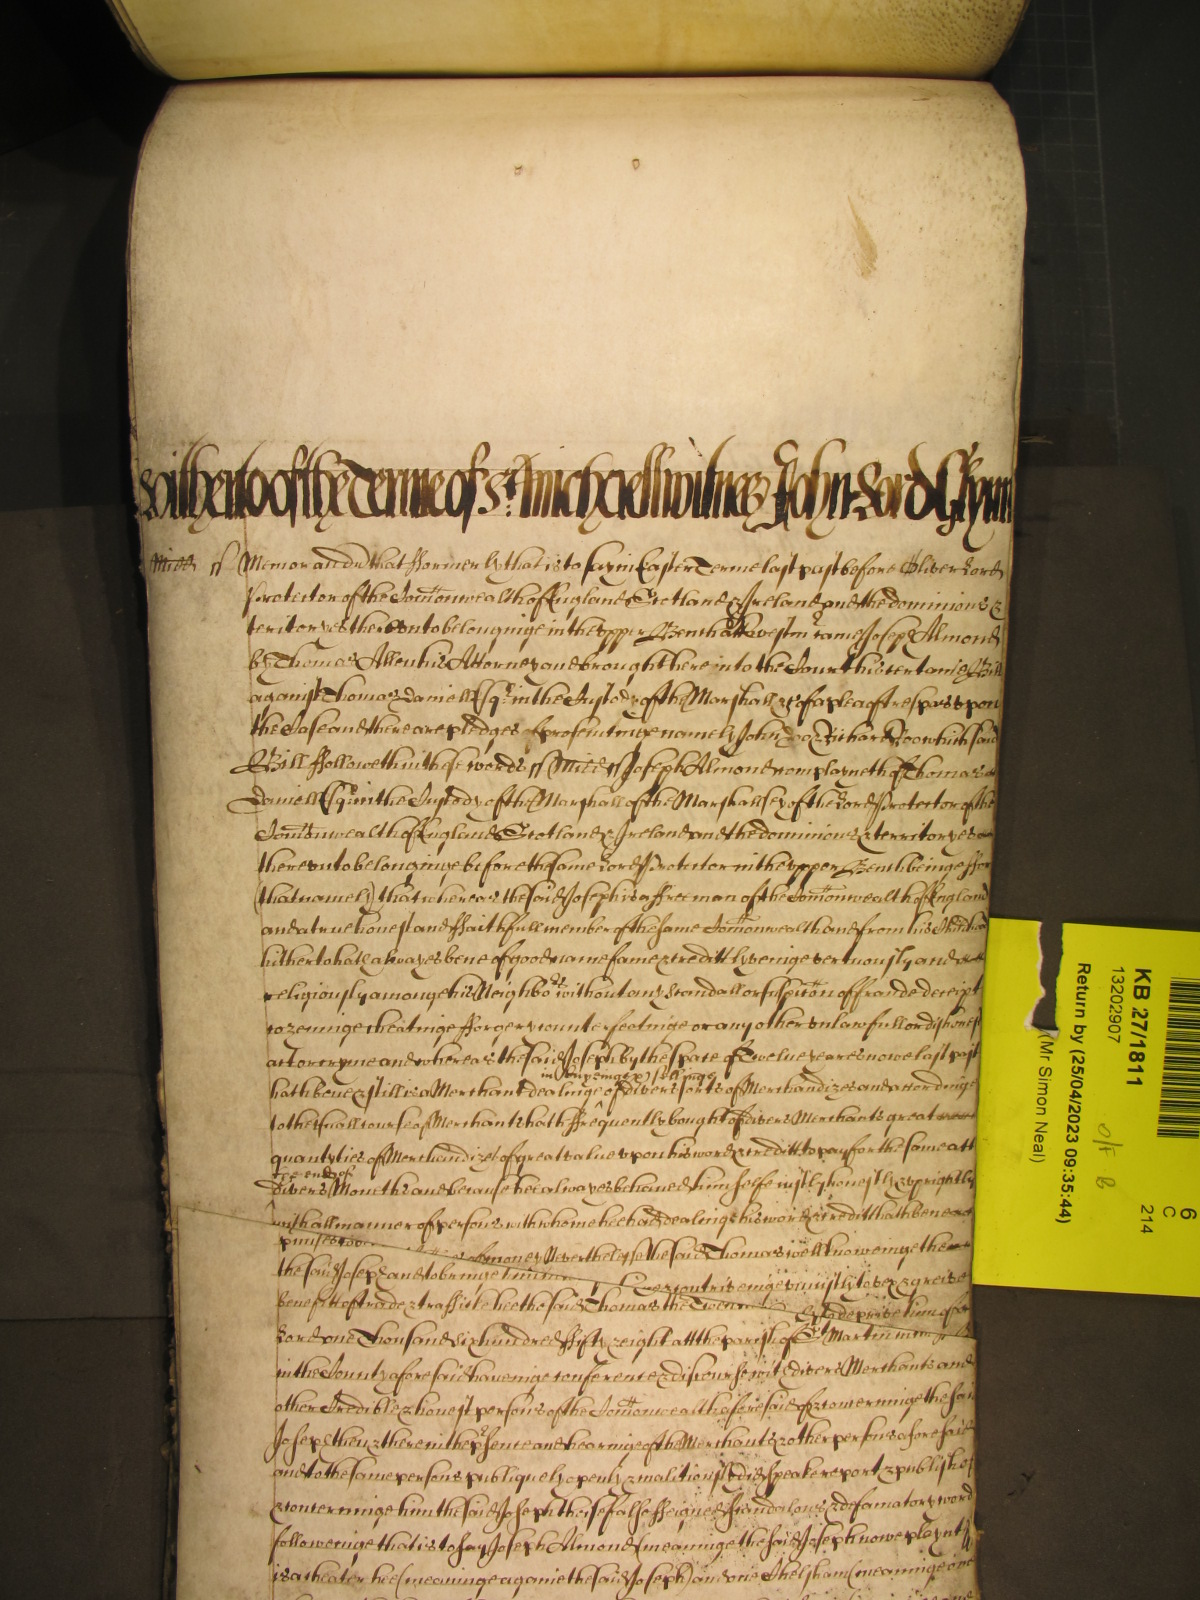 Wittnes hitherto of the Terme of St. Michaell wittnes John Lord Glynn
Midd ss Memorand that fformerly that is to say in Easter Terme last past before Oliver Lord
Protector of the Comonwealth of England Scotland & Ireland and the dominions &
teritoryes thereunto belonginge in the upper Bench att Westmr came Joseph Almond
by Thomas Allen his Attorney and brought here into the Court his certaine Bill
against Thomas Daniell Esqr in the Custody of the Marshall &c of a plea of trespas upon
the Case and there are pledges of prosecutinge namely John Doo & Richard Roo which said
Bill ffolloweth in these words ss Midd ss Joseph Almond complayneth of Thomas
Daniell Esqr in the Custody of the Marshall of the Marshallsey of the Lord Protector of the
Comonwealth of England Scotland & Ireland and the dominions & territoryes
thereunto belonginge before the same Lord Protector in the upper Bench beinge ffor
that namely) that whereas the said Joseph is a ffreeman of the Comonwealth of England
and a true honest and ffaithfull member of the same Comonwealth and from his Childhood
hitherto hath alwayes bene of good name fame & creditt liveinge vertuously and
religiously amonge his Neighbors without any scandall or suspition of fraude deceipt
cozeninge cheatinge fforgery counterfeitinge or any other unlawfull or dishonest
act or cryme and whereas the said Joseph by the space of Twelve yeares nowe last past
in buyinge & sellinge
hath bene & still is a Merchant dealinge of divers sorts of Merchandizes and accordinge
to the usuall course of Merchants hath ffrequently bought of divers Merchants great
quantyties of Merchandizes of great value upon his word & creditt to pay for the same att
the end of
divers Moneths and because hee alwayes behaved himselfe justly honestly & uprightly
with all manner of persons with whome hee had dealings his word & creditt hath bene
money Neverthelesse the said Thomas well knoweinge the
the said Joseph and to bringe contriveinge unjustly to vex & greive
benefitt of trade & trafficke hee the said Thomas the & to deprive him of
Lord one Thousand six hundred ffifty & eight att the parish of St Martin
in the County aforesaid haveinge conference & discourse with divers Merchants and
other Credible & honest persons of the Comonwealth aforesaid of & concerninge the said
Joseph then & there in the psence and hearinge of the Merchants & other persons aforesaid
and to the same persons publiquely openly & malitiously did speake report & publish of
& concerninge him the said Joseph theise false ffeigned scandalous & defamatory words
followeinge that is to say Joseph Almond (meaninge the said Joseph nowe playnt)
is a cheater hee (meaninge againe the said Joseph) and one Chelsham (meaninge one
KB 27/1811
13202907
Return by (25/04/2023 09:35:44)
(Mr Simon Neal)
6
C
214